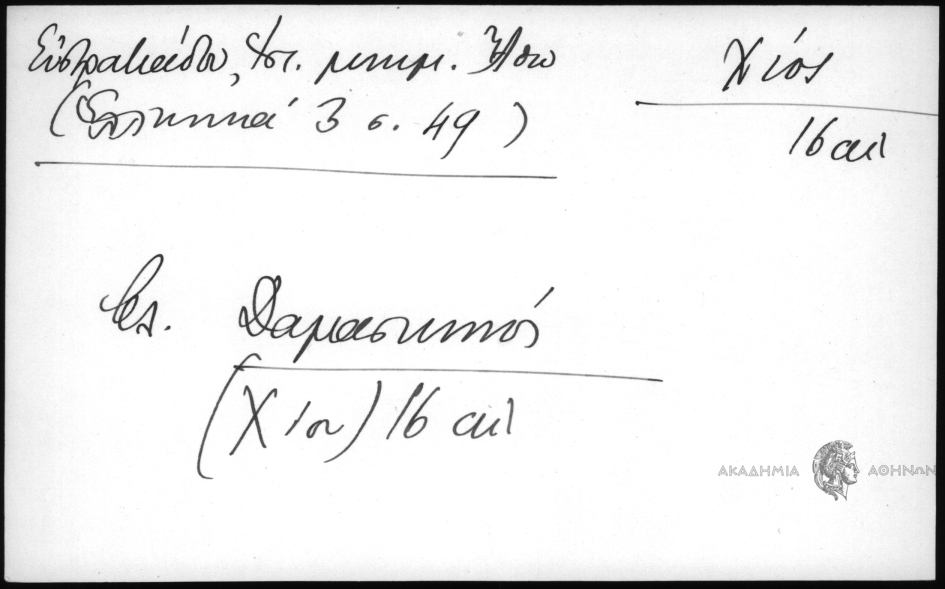 Εὐστρατιάδου, Ἱστ. μνημ. Ἄθω
(Ἑλληνικά 3 σ. 49)
Χίος
16 αἰ
ἐπ. Δαμασκηνός
(Χίου) 16 αἰ
ΑΚΑΔΗΜΙΑ ΑΘΗΝΩΝ